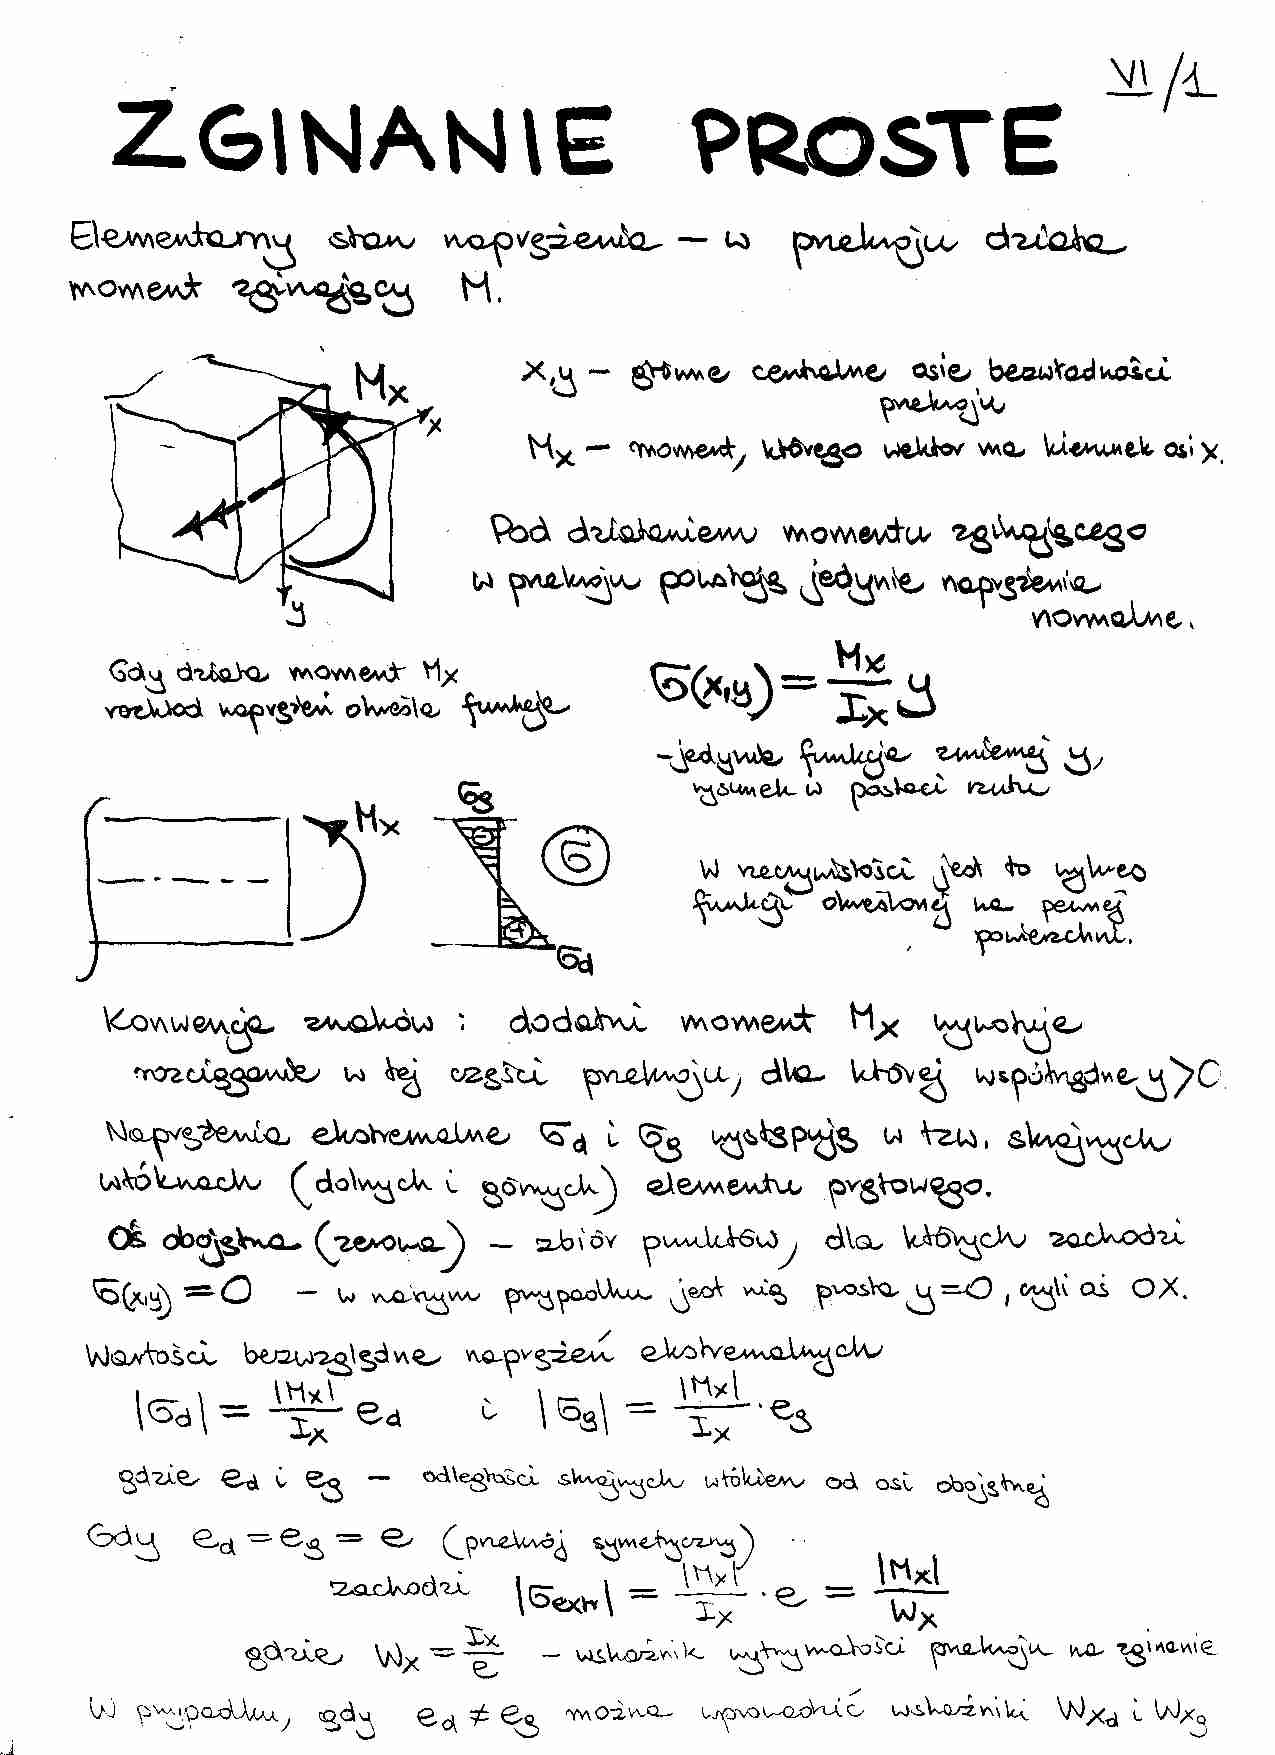 VI/1
ZGINANIE PROSTE
Elementarny stan naprężenia – w przekroju działa
moment zginający M.
Mx
x
y
x,y – główne centralne osie bezwładności
przekroju
Mx – moment, którego wektor ma kierunek osi x.
Pod działaniem momentu zginającego
w przekroju powstają jedynie naprężenia
normalne.
Gdy działa moment Mx
rozkład naprężeń określa funkcja
σ(x,y) = Mx/Ix y
– jedynie funkcja zmiennej y,
rysunek w postaci rzutu
Mx
σg
⊖
σ
⊕
σd
W rzeczywistości jest to wykres
funkcji określonej na pewnej
powierzchni.
Konwencja znaków : dodatni moment Mx wywołuje
rozciąganie w tej części przekroju, dla której współrzędne y>0
Naprężenia ekstremalne σd i σg występują w tzw. skrajnych
włóknach (dolnych i górnych) elementu prętowego.
Oś obojętna (zerowa) – zbiór punktów, dla których zachodzi
σ(x,y) = 0 – w naszym przypadku jest nią prosta y=0, czyli oś OX.
Wartości bezwzględne naprężeń ekstremalnych
|σd| = |Mx|/Ix ed i |σg| = |Mx|/Ix · eg
gdzie ed i eg – odległości skrajnych włókien od osi obojętnej
Gdy ed = eg = e (przekrój symetryczny)
zachodzi |σextr| = |Mx|/Ix · e = |Mx|/Wx
gdzie Wx = Ix/e – wskaźnik wytrzymałości przekroju na zginanie
W przypadku, gdy ed ≠ eg można wprowadzić wskaźniki Wxd i Wxg